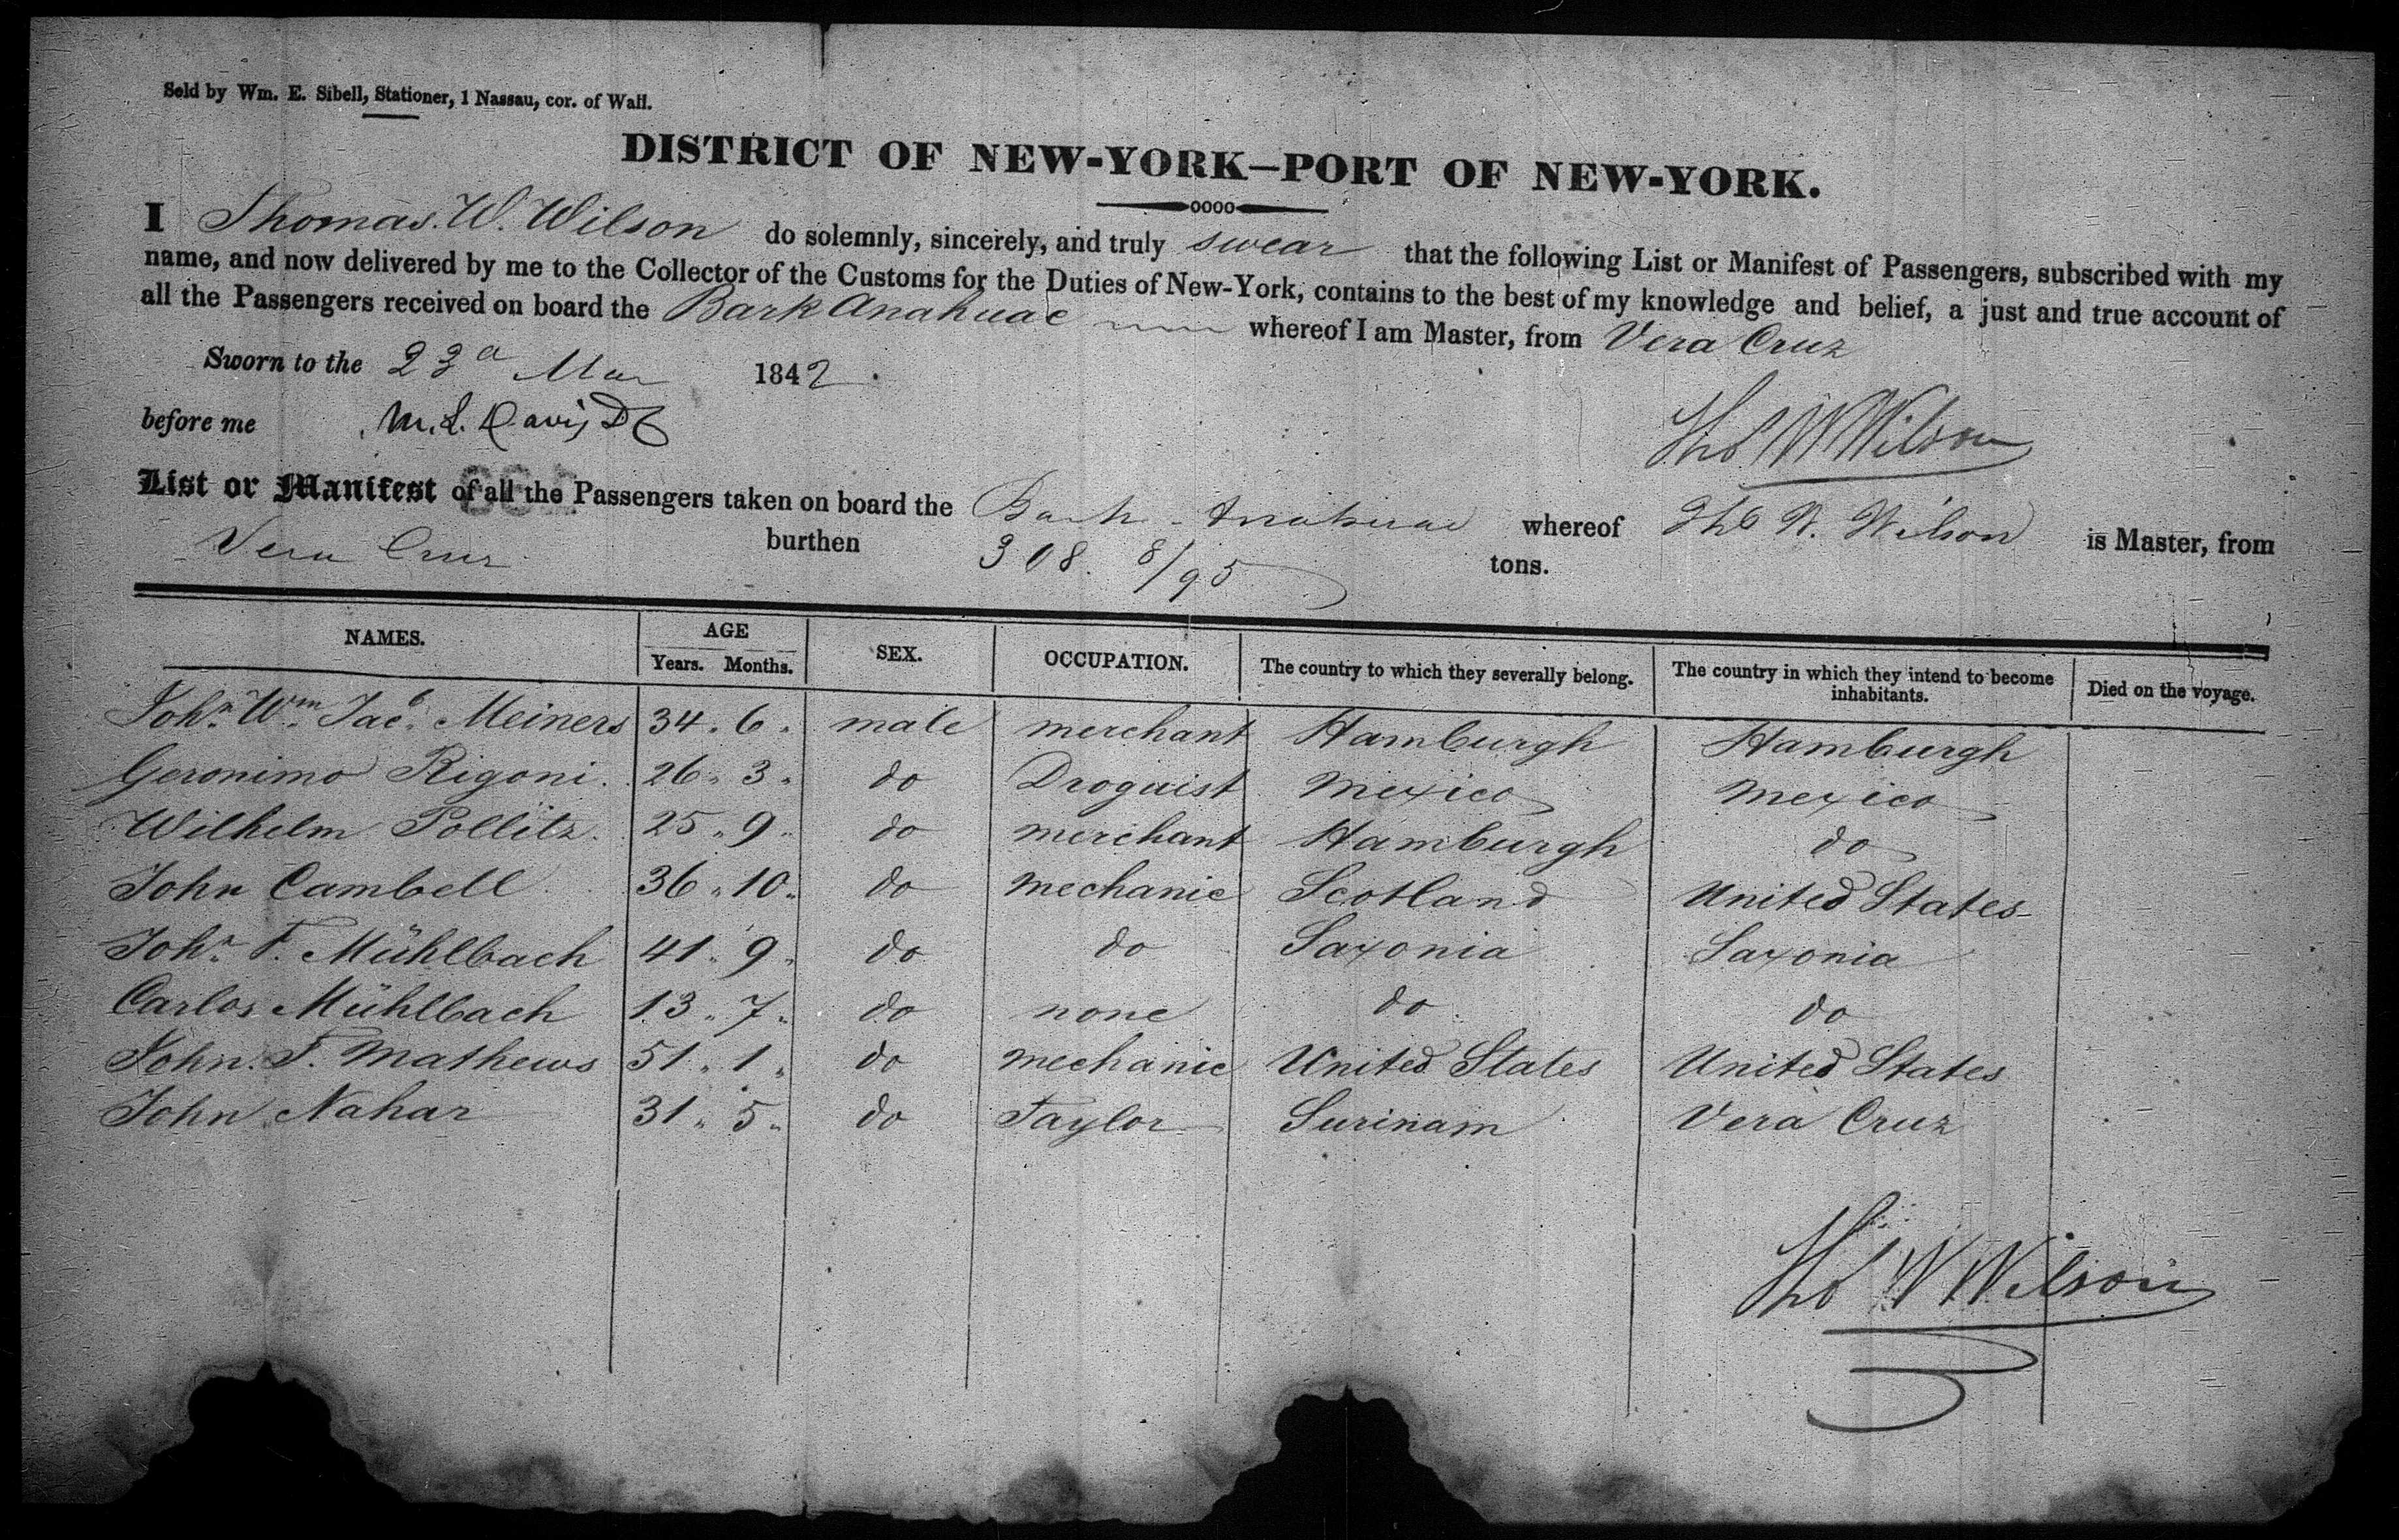 Sold by Wm. E. Sibell, Stationer, 1 Nassau, cor. of Wall.
DISTRICT OF NEW-YORK—PORT OF NEW-YORK.
I Thomas. W. Wilson do solemnly, sincerely, and truly swear that the following List or Manifest of Passengers, subscribed with my
name, and now delivered by me to the Collector of the Customs for the Duties of New-York, contains to the best of my knowledge and belief, a just and true account of
all the Passengers received on board the Bark Anahuac whereof I am Master, from Vera Cruz
Sworn to the 23d Mar 1842.
before me M. L. Davis
Tho W Wilson
List or Manifest of all the Passengers taken on board the Bark Anahuac whereof Tho W. Wilson is Master, from
Vera Cruz burthen 308. 8/95 tons.
NAMES. AGE Years. Months. SEX. OCCUPATION. The country to which they severally belong. The country in which they intend to become inhabitants. Died on the voyage.
John. Wm. Jacb. Meiners 34 " 6 " male merchant Hamburgh Hamburgh
Geronimo Rigoni. 26 " 3 " do Droguist Mexico Mexico
Wilhelm Pollitz. 25 " 9 " do merchant Hamburgh do
John Cambell 36 " 10 " do mechanic Scotland United States
Johr. F. Mühlbach 41 " 9 " do do Saxonia Saxonia
Carlos Mühlbach 13 " 7 " do none do do
John. F. Mathews 51 " 1 " do mechanic United States United States
John Nahar 31 " 5 " do Taylor Surinam Vera Cruz
Tho W Wilson